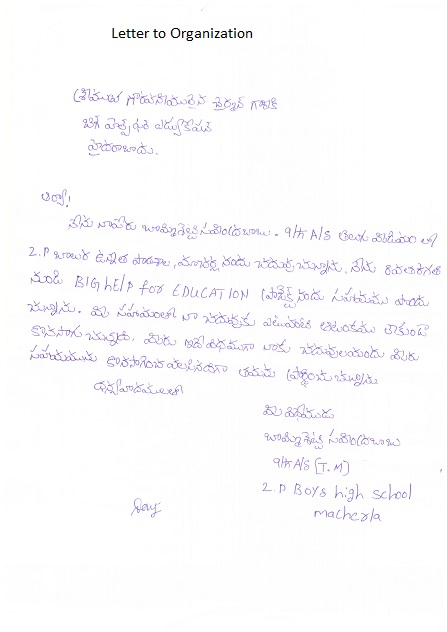 Letter to Organization
శ్రీయుత గౌరవనీయులైన ఛైర్మన్ గారికి
బిగ్ హెల్ప్ ఫర్ ఎడ్యుకేషన్
హైదరాబాదు.
ఆర్యా!
నేను నాపేరు బొమ్మిశెట్టి మహేంద్రబాబు. 9th A/S తెలుగు మీడియం లో
Z.P బాలుర ఉన్నత పాఠశాల, మాచర్ల నందు చదువుచున్నాను. నేను 8వతరగతి
నుండి BIG HELP for EDUCATION ప్రాజెక్ట్ నందు సహాయము పొందు
చున్నాను. మీ సహాయంతో నా చదువుకు ఎటువంటి ఆటంకము లేకుండా
కొనసాగుచున్నది. మీరు ఇదే విధముగా నాకు చదువులయందు మీరు
సహాయమును కొనసాగించవలసినదిగా తమరిని ప్రార్థించుచున్నాను
ధన్యవాదములతో
మీ విధేయుడు
బొమ్మిశెట్టి మహేంద్రబాబు
9th A/S [T.M]
Z.P Boys high school
macherla